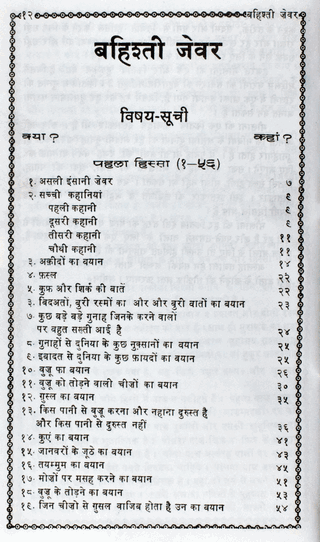 १२
बहिश्ती ज़ेवर
बहिश्ती जेवर
विषय-सूची
क्या ? कहां ?
पहला हिस्सा (१-५६)
१. असली इंसानी ज़ेवर ७
२. सच्ची कहानियां ९
पहली कहानी ९
दूसरी कहानी ९
तीसरी कहानी ११
चौथी कहानी ११
३. अक़ीदों का बयान १४
४. फ़स्ल २२
५. कुफ़्र और शिर्क की बातें २२
३. बिदअतों, बुरी रस्मों का और और बुरी बातों का बयान २३
७. कुछ बड़े बड़े गुनाह जिनके करने वालों
पर बहुत सख्ती आई है २४
८. गुनाहों से दुनिया के कुछ नुक़्सानों का बयान २५
९. इबादत से दुनिया के कुछ फ़ायदों का बयान २५
१०. वुज़ू का बयान २६
११. वुज़ू को तोड़ने वाली चीज़ों का बयान ३०
१२. गुस्ल का बयान ३५
१३. किस पानी से वुज़ू करना और नहाना दुरुस्त है
और किस पानी से दुरुस्त नहीं ३६
१४. कुएं का बयान ४१
१५. जानवरों के जूठे का बयान ४३
१६. तयम्मुम का बयान ४५
१७. मोज़ों पर मसह करने का बयान ५१
१८. वुज़ू के तोड़ने का बयान ५३
१९. जिन चीज़ो से गुसल वाजिब होता है उन का बयान ५४